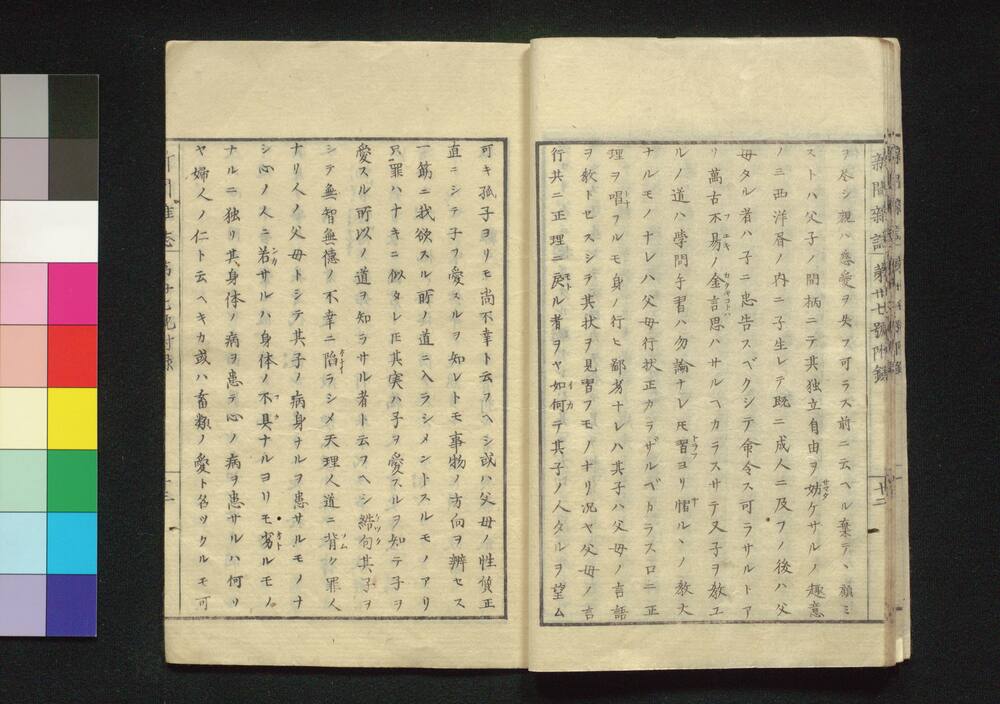 ヲ尽シ親ハ慈愛ヲ失フ可ラス前ニ云ヘル棄テヽ顧ミ
ストハ父子ノ間柄ニテ其独立自由ヲ妨ケサルノ趣意
ノミ西洋各ノ内ニ子生レテ既ニ成人ニ及フノ後ハ父
母タル者ハ子ニ忠告スベクシテ命令ス可ラサルトア
リ萬古不易ノ金言思ハサルヘカラスサテ又子ヲ教ユ
ルノ道ハ学問手習ハ勿論ナレ𪜈習ヨリ慣ルヽノ教大
ナルモノナレハ父母行状正カラザルベカラス口ニ正
理ヲ唱フルモ身ノ行ヒ鄙劣ナレハ其子ハ父母ノ言語
ヲ教トセスシテ其状ヲ見習フモノナリ況ヤ父母ノ言
行共ニ正理ニ戻ル者ヲヤ如何テ其子ノ人タルヲ望ム
新聞雜誌 第廿七號附録 十二
可キ孤子ヨリモ尚不幸ト云フヘシ或ハ父母ノ性質正
直ニシテ子フ愛スルヲ知レトモ事物ノ方向ヲ辨セス
一筋ニ我欲スル所ノ道ニ入ラシメントスルモノアリ
只罪ハナキニ似タレ𪜈其実ハ子ヲ愛スルヲ知テ子ヲ
愛スル所以ノ道ヲ知ラサル者ト云フヘシ結句其子ヲ
シテ無智無徳ノ不幸ニ陷ラシメ天理人道ニ背ク罪人
ナリ人ノ父母トシテ其子ノ病身ナルヲ患サルモノナ
シ心ノ人ニ若サルハ身体ノ不具ナルヨリモ劣ルモノ
ナルニ独リ其身体ノ病ヲ患テ心ノ病ヲ患サルハ何リ
ヤ婦人ノ仁ト云ヘキカ或ハ畜類ノ愛ト名ツクルモ可